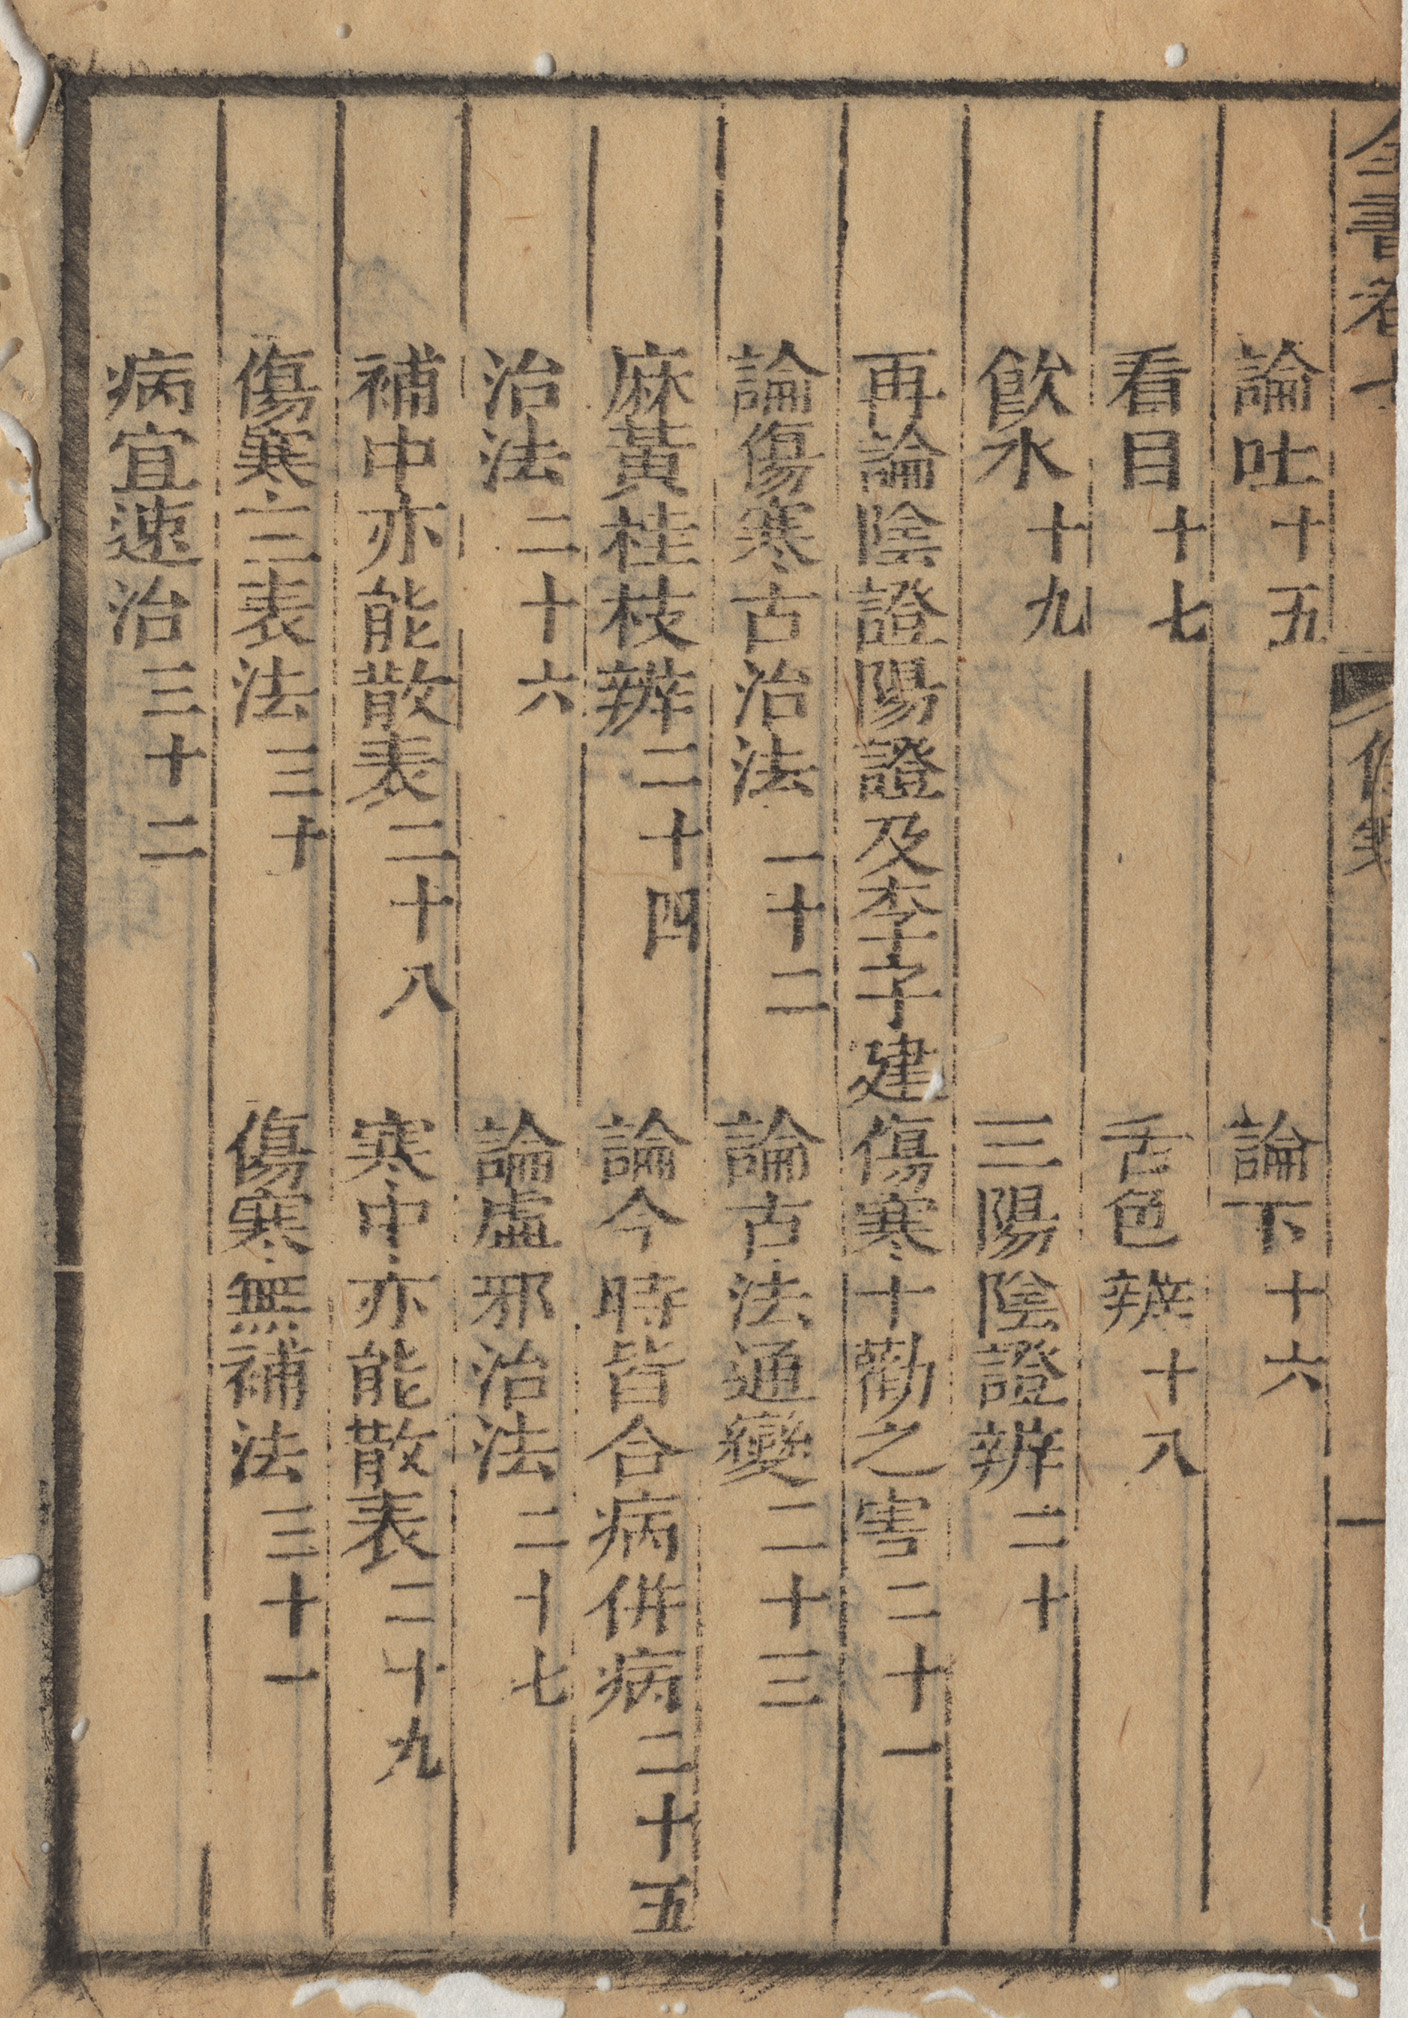 全書卷 一
論吐十五 論下十六
看目十七 舌色辨十八
飲水十九 三陽陰證辨二十
再論陰證陽證及李子建傷寒十勸之害二十一
論傷寒古治法一十二 論古法通變二十三
麻黃桂枝辨二十四 論今時皆合病併病二十五
治法二十六 論虛邪治法二十七
補中亦能散表二十八 寒中亦能散表二十九
傷寒三表法三十 傷寒無補法三十一
病宜速治三十二